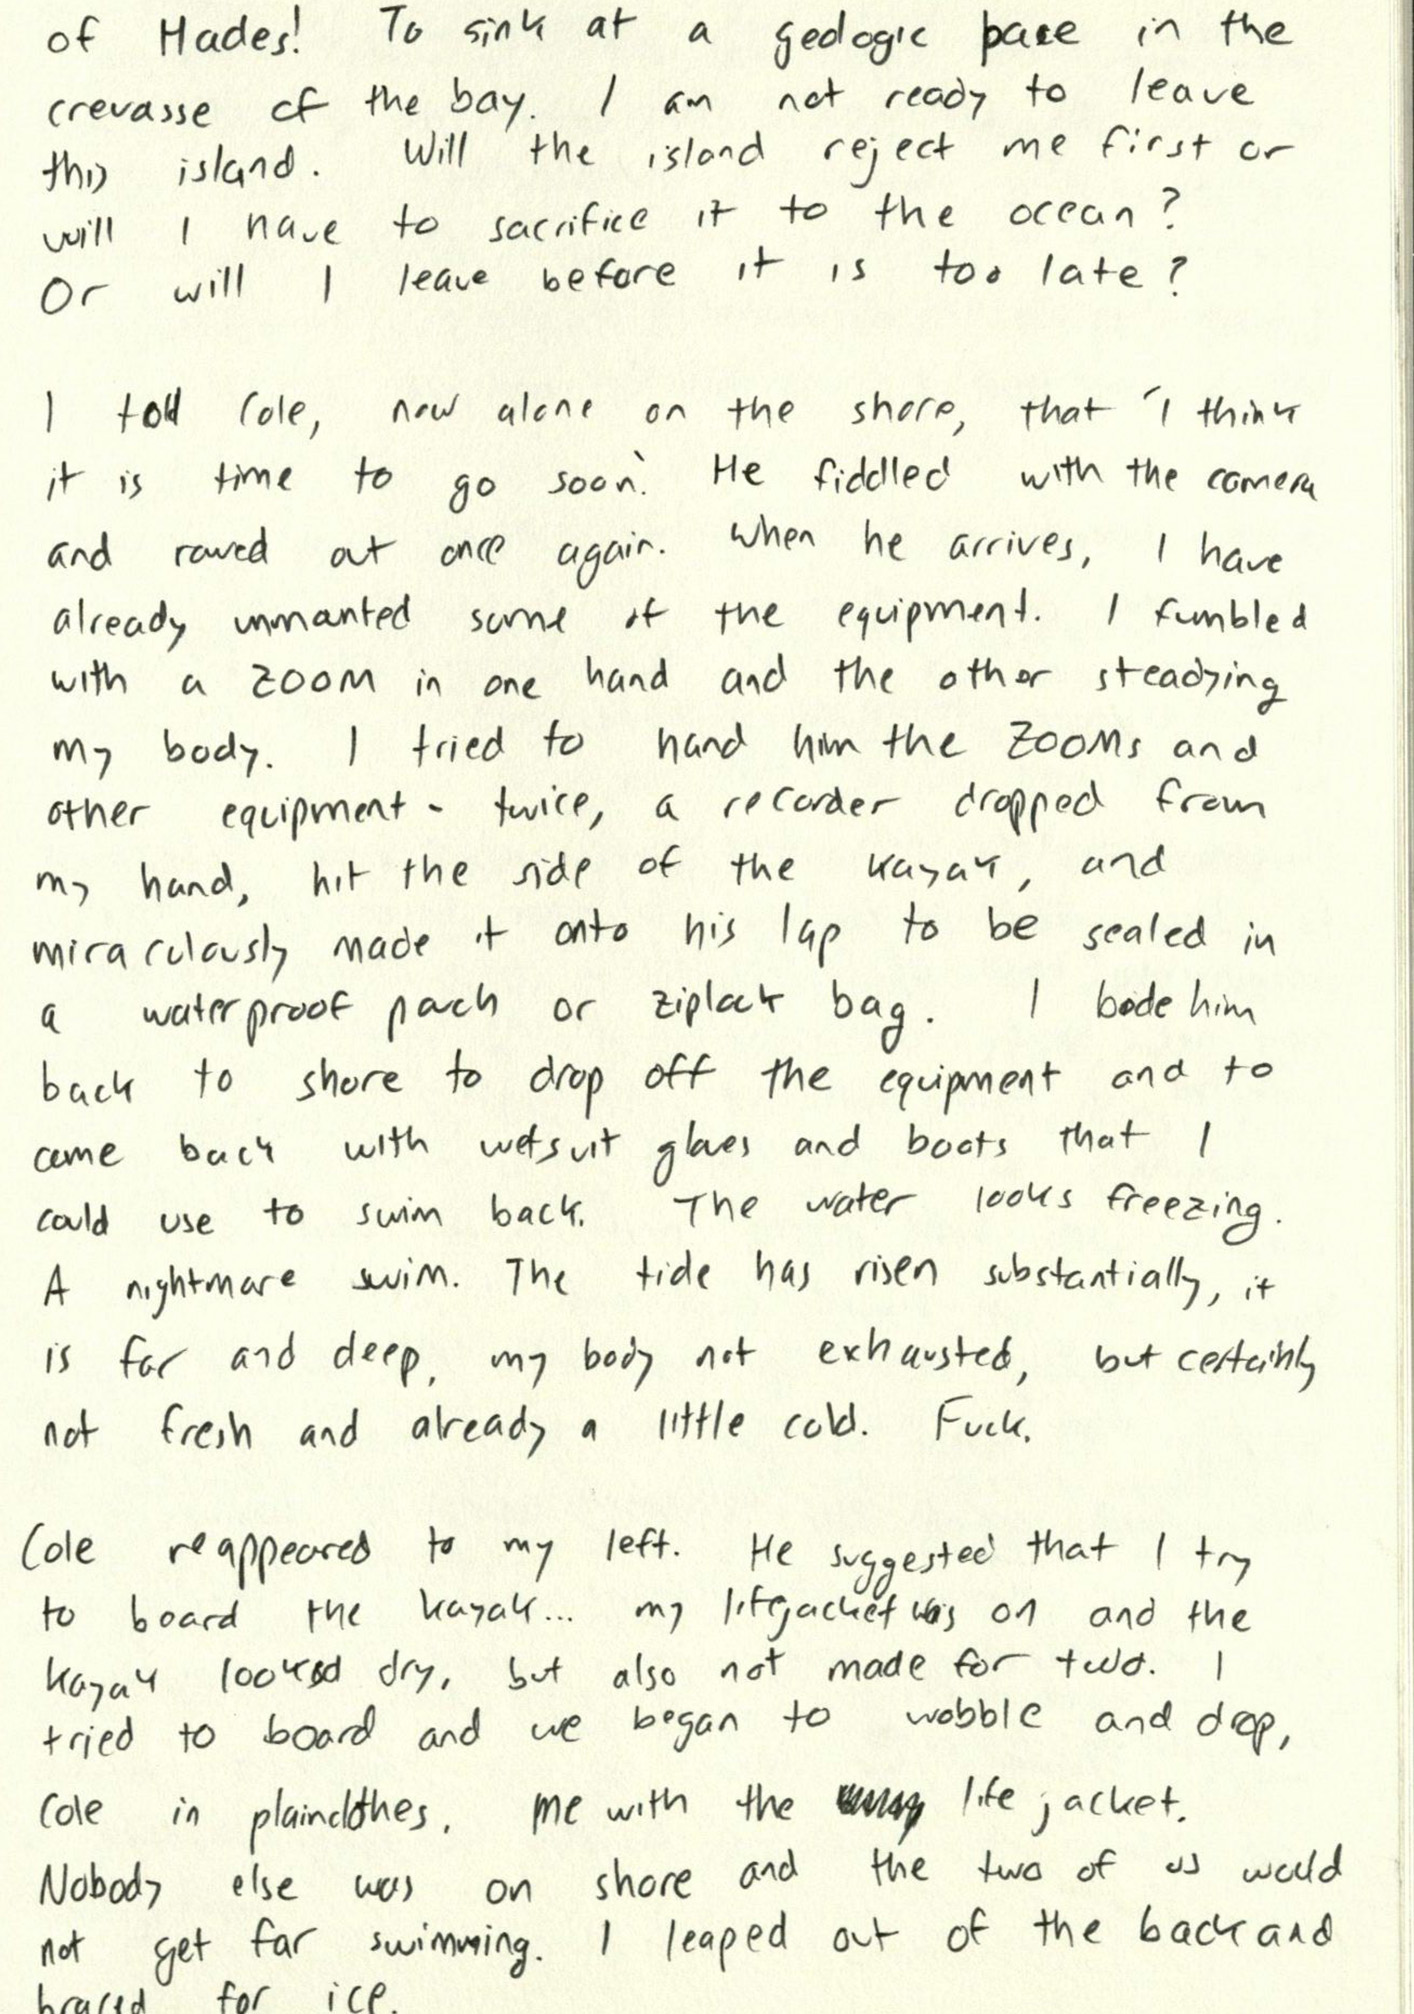 of Hades! To sink at a geologic pace in the
crevasse of the bay. I am not ready to leave
this island. Will the island reject me first or
will I have to sacrifice it to the ocean?
Or will I leave before it is too late?
I told Cole, now alone on the shore, that "I think
it is time to go soon." He fiddled with the camera
and rowed out once again. When he arrives, I have
already unmounted some of the equipment. I fumbled
with a ZOOM in one hand and the other steadying
my body. I tried to hand him the ZOOMs and
other equipment - twice, a recorder dropped from
my hand, hit the side of the kayak, and
miraculously made it onto his lap to be sealed in
a waterproof pouch or ziplock bag. I bode him
back to shore to drop off the equipment and to
come back with wetsuit gloves and boots that I
could use to swim back. The water looks freezing.
A nightmare swim. The tide has risen substantially, it
is far and deep, my body not exhausted, but certainly
not fresh and already a little cold. Fuck.
Cole reappeared to my left. He suggested that I try
to board the kayak... my lifejacket was on and the
kayak looked dry, but also not made for two. I
tried to board and we began to wobble and drop,
Cole in plainclothes, me with the life jacket.
Nobody else was on shore and the two of us would
not get far swimming. I leaped out of the back and
braced for ice.